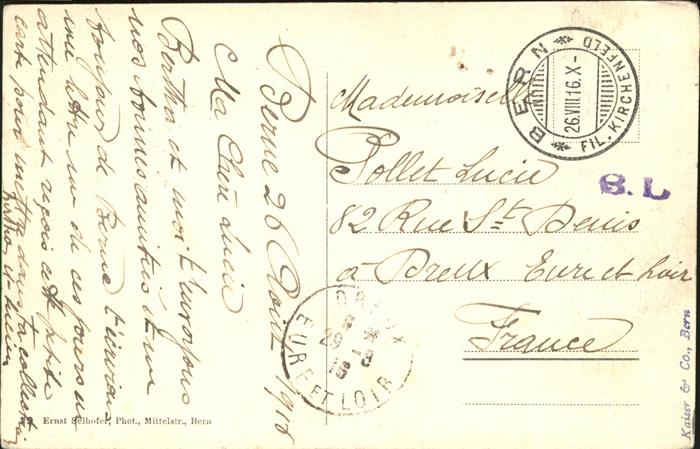 Berne 26 Août 1916
Ma Chère Lucie
Bertha et moi t'envoyons
nos bonnes amitiés et une
bonjour de Berne t'enverrai
une lettre un de ces jours en
attendant reçois cette petite
carte pour mettre dans ta collection
Bertha et
Mademoiselle
Pollet Lucie
82 Rue St Denis
à Dreux Eure et Loir
France
BERN
FIL. KIRCHENFELD
26.VIII.16.X-
B.L
DREUX
29 - 8
16
EURE ET LOIR
Ernst Selhofer, Phot., Mittelstr., Bern
Kaiser & Co., Bern